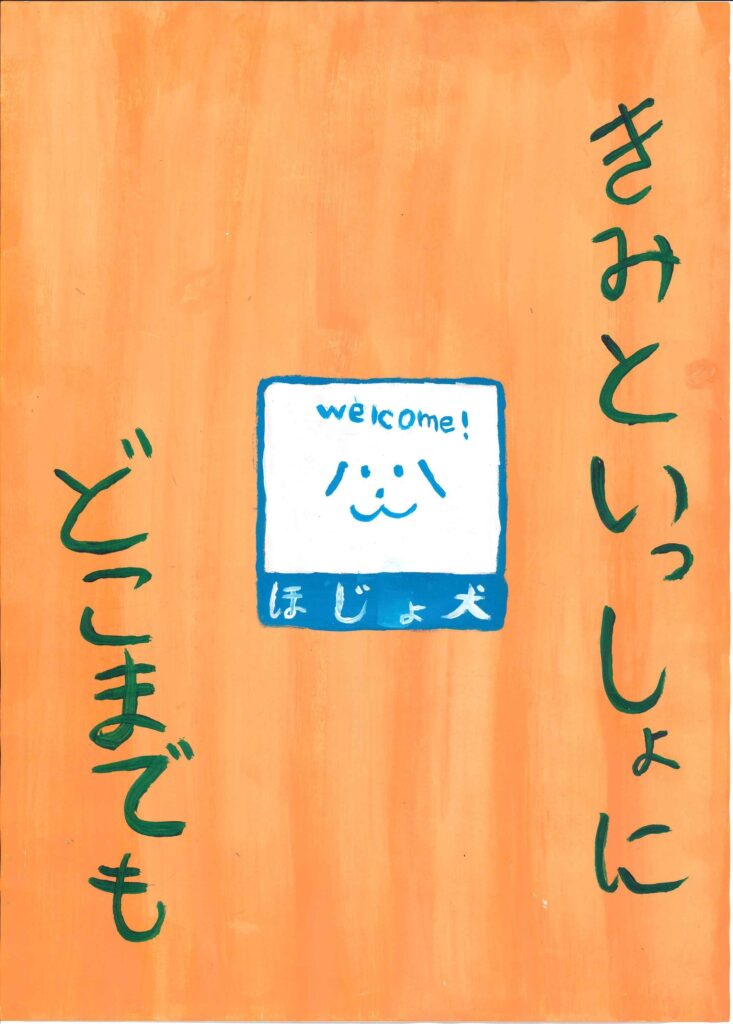 きみといっしょに
welcome!
ほじょ犬
どこまでも